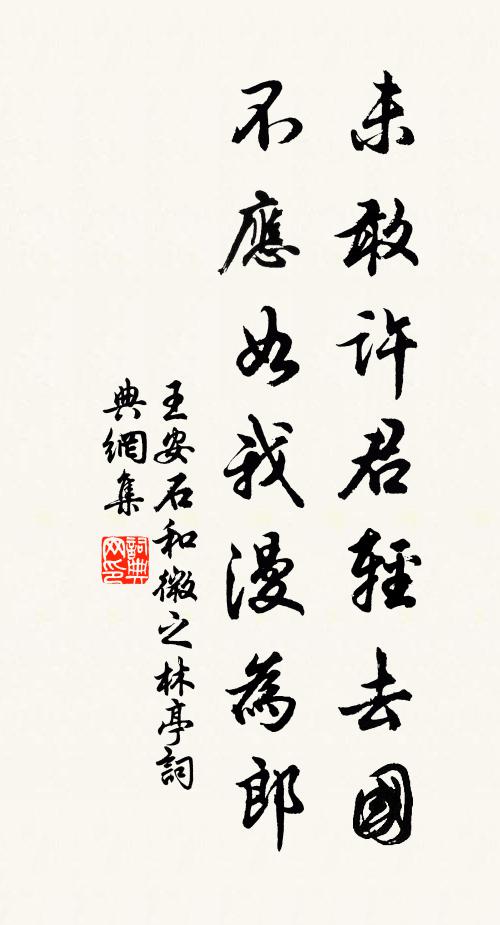 未敢許君輕去國
不應如我漫為郎
王安石和微之林亭詞
典網集
詞典網印